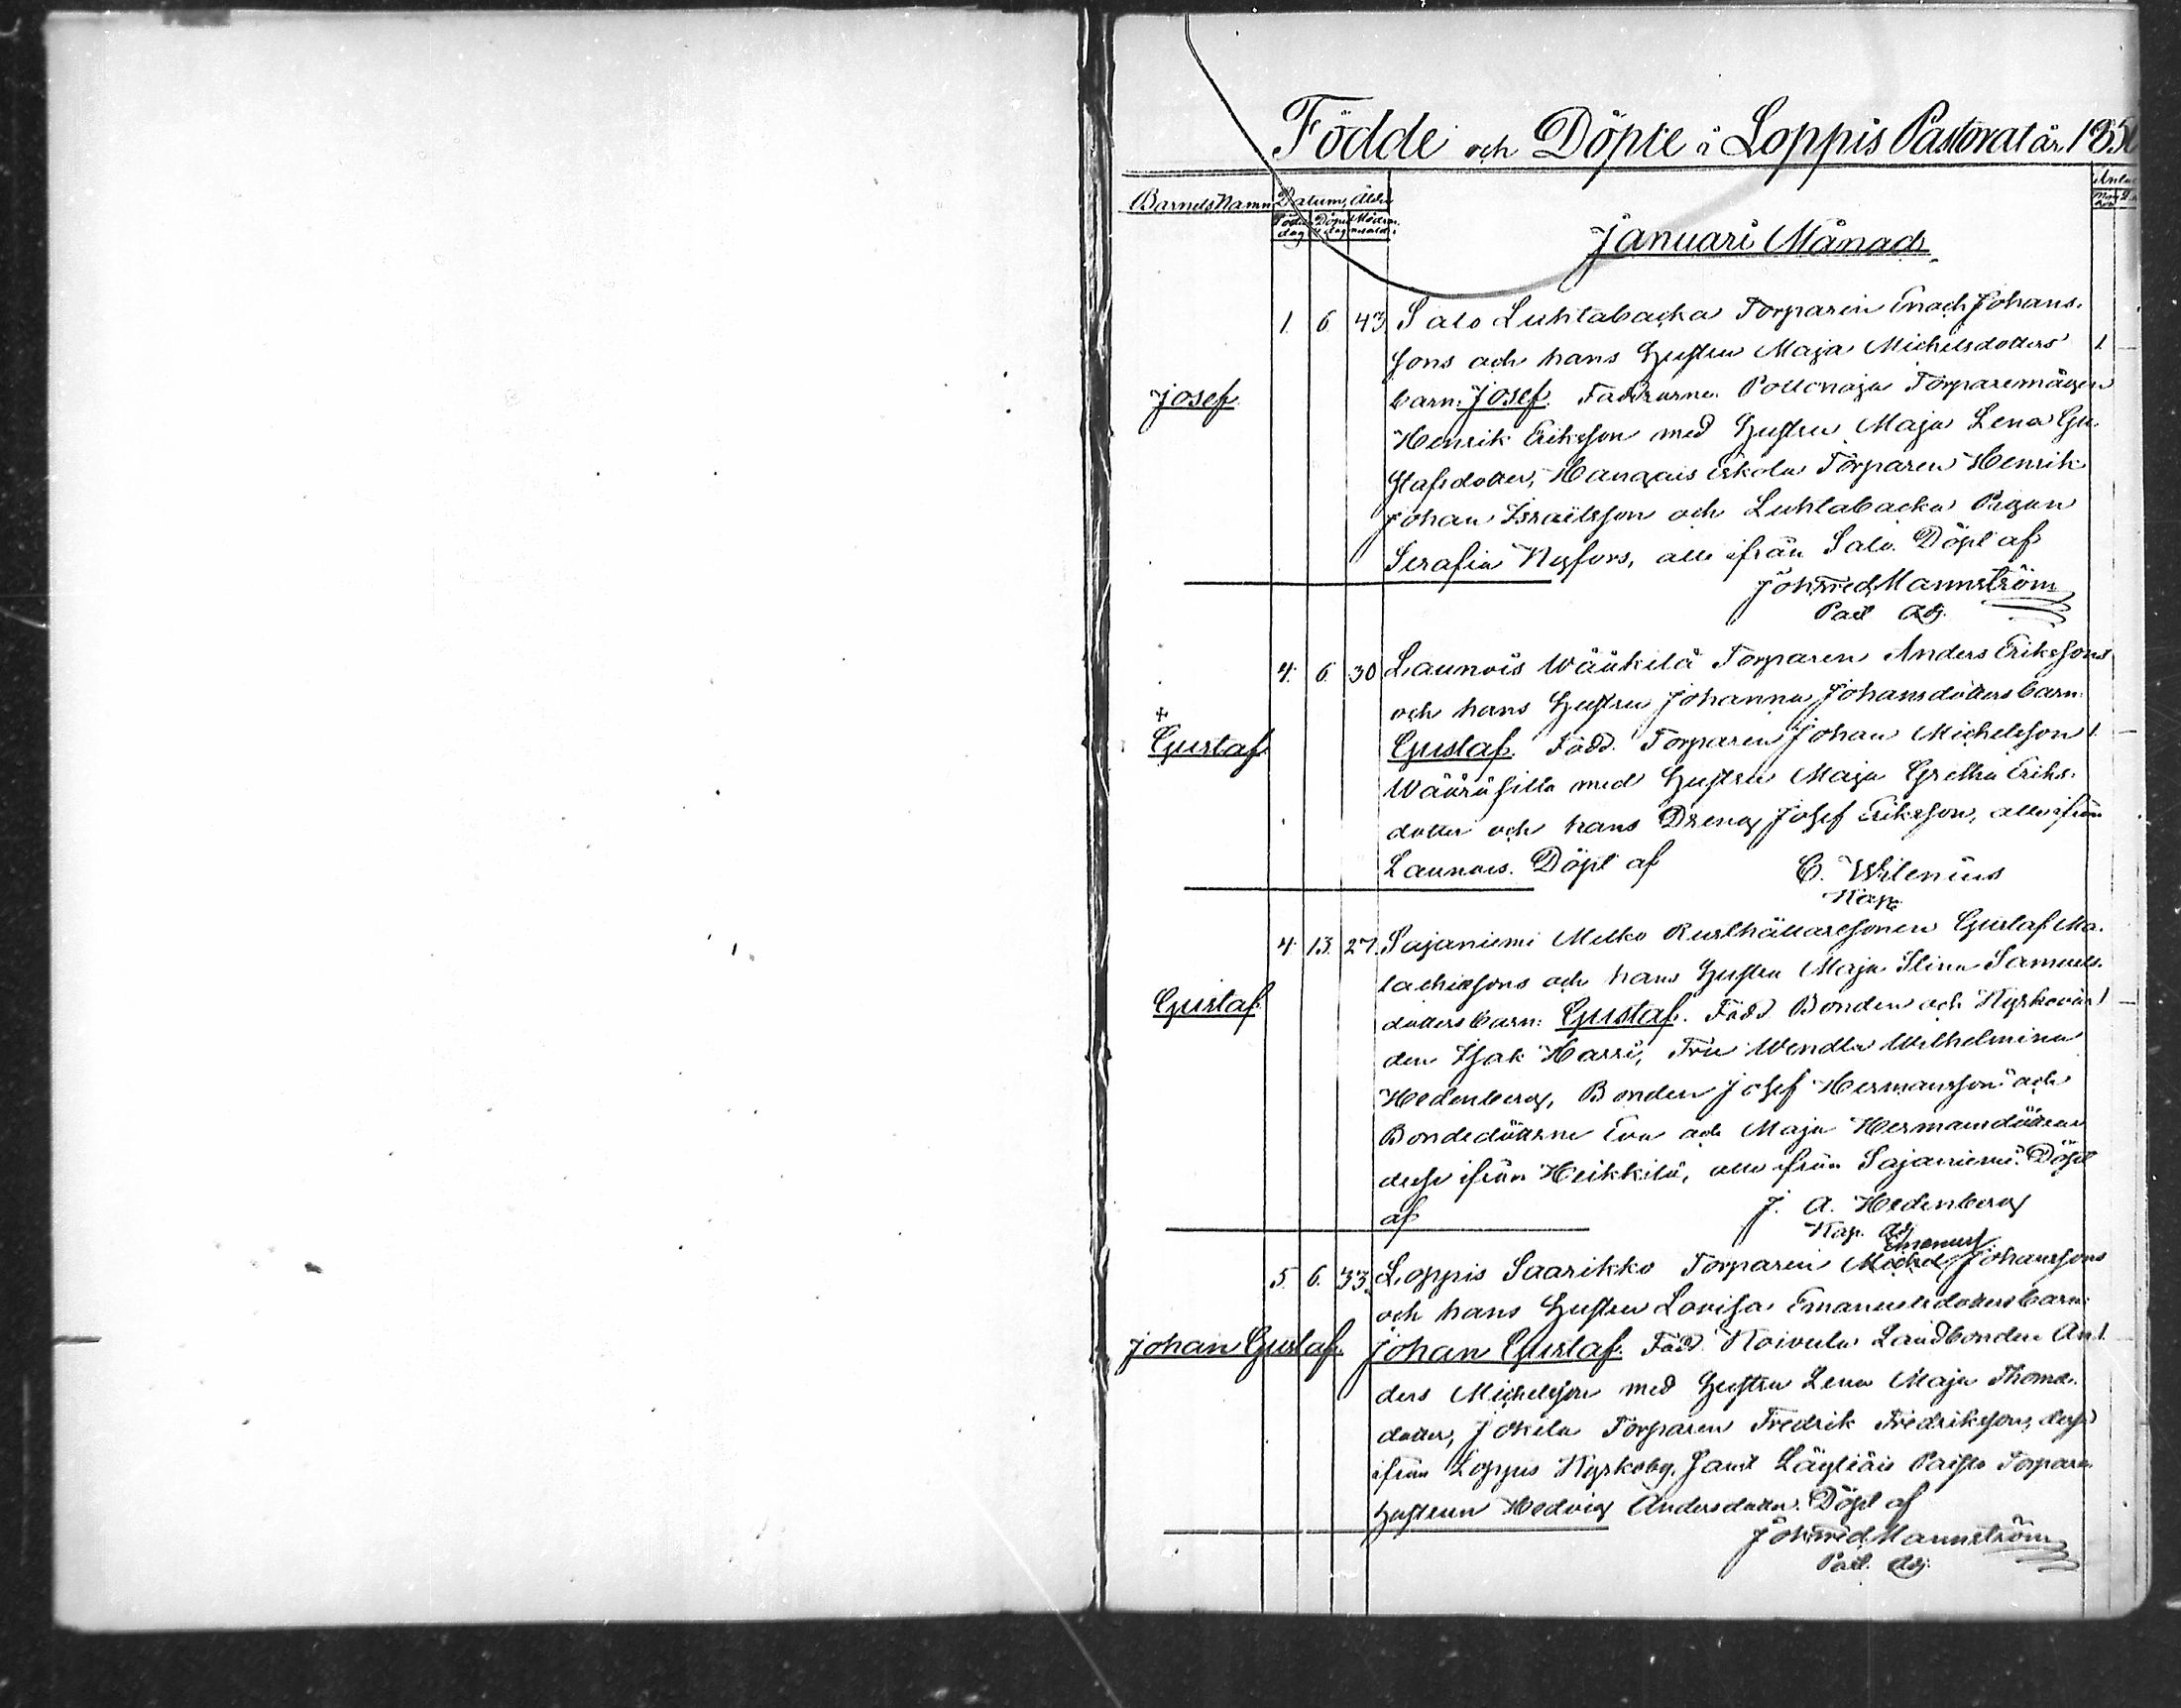 Födde och Döpte i Loppis Pastorat år 185
Barnets Namn Datum, Ålder
Födelse dag Döpelse dag Modrens ålder
Januari Månad
1. 6 43 Salo Luhtabacka Torparen Enoch Johans-
sons och hans Hustru Maja Michelsdotters 1
Josef. barn: Josef. Faddrarne Torparemågen
Henrik Eriksson med Hustru Maja Lena Gu-
stafsdotter, Eskola Torparen Henrik
Johan Israelsson och Luhtabacka Pigan
Serafia Nyfors, alle ifrån Salo. Döpt af
Joh: Fred. Mannström
Past. Adj.
4. 6. 30 Launois Wääkilä Torparen Anders Erikssons
och hans Hustru Johanna Johansdotters barn:
+
Gustaf Gustaf. Fadd. Torparen Johan Michelsson 1.
med Hustru Maja Gretha Eriks-
dotter och hans Dreng Josef Eriksson, alle ifrån
Launois. Döpt af C. Wilenius
Kap.
4. 13. 27. Sajaniemi Melko Rusthållaresonen Gustaf Ma-
lachiessons och hans Hustru Maja Stina Samuels-
Gustaf. dotters barn: Gustaf. Fadd. Bonden och Kyrkovär- 1
den Isak Harri, Fru Wendla Wilhelmina
Hedenberg, Bonden Josef Hermansson och
Bondedöttrne Eva och Maja Hermansdöttrar
desse ifrån Heikkilä, alle ifrån Sajaniemi. Döpt
af J. A. Hedenberg
Kap. Adj.
Emanuel
5. 6. 33. Loppis Saarikko Torparen Michel Johanssons
och hans Hustru Lovisa Emanuelsdotters barn:
Johan Gustaf. Johan Gustaf. Fadd. Koivula Landbonden An- 1.
ders Michelsson med Hustru Lena Maja Thomas-
dotter, Jokela Torparen Fredrik Fredriksson, desse
ifrån Loppis Kyrkoby, samt Läyliäis Torpare
Hustrun Hedvig Andersdotter. Döpt af
Joh: Fred. Mannström
Past. Adj.